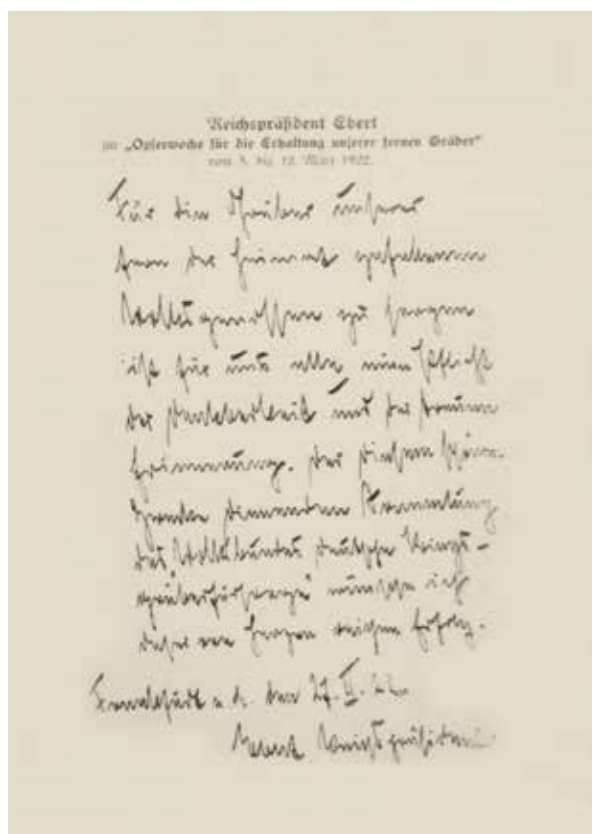 Reichspräsident Ebert
zur „Opferwoche für die Erhaltung unserer fernen Gräber"
vom 5. bis 12. März 1922.
Für die Gräber unserer
fern der Heimat gefallenen
Volksgenossen zu sorgen
ist für uns alle eine Pflicht
der Dankbarkeit und der treuen
Erinnerung. Der diesem
Zwecke dienenden Sammlung
des Volksbundes deutsche Kriegs-
gräberfürsorge wünsche ich
daher von Herzen reichen Erfolg.
den 27. II. 22
Ebert Reichspräsident